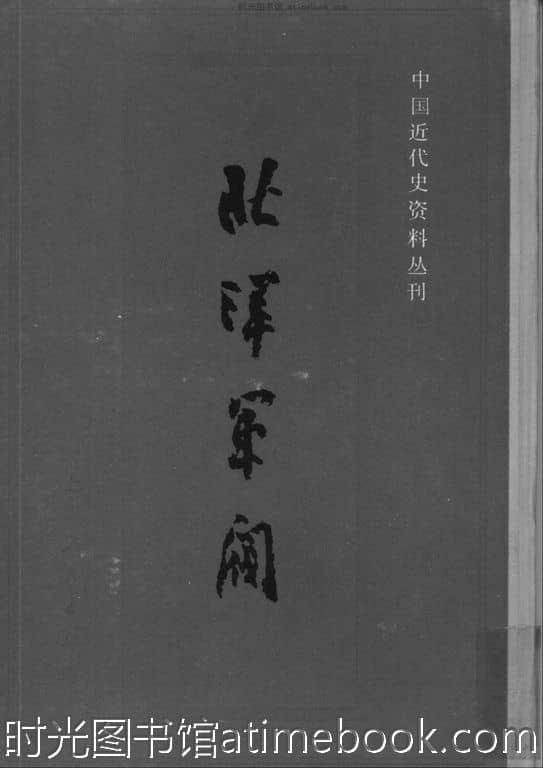 时光图书馆 atimebook.com
中国近代史资料丛刊
北洋军阀
时光图书馆atimebook.com